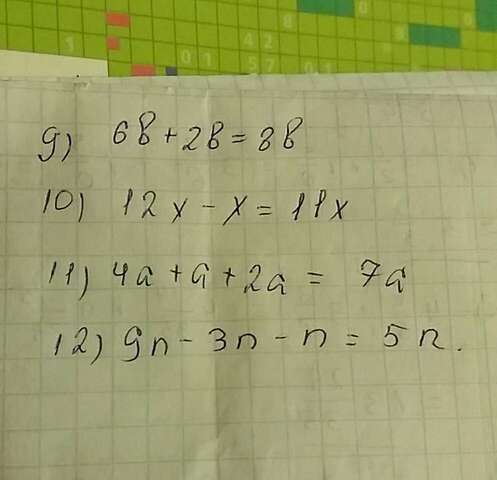 9) 6в + 2в = 8в
10) 12x - x = 11x
11) 4a + a + 2a = 7a
12) 9n - 3n - n = 5n.